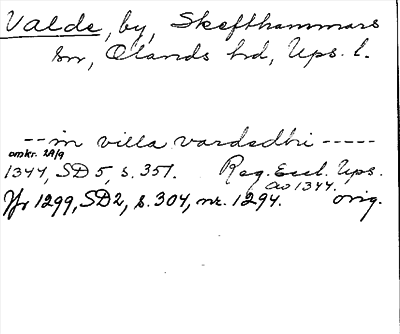 Valde, by, Skefthammars
sn, Olands hd, Ups. l.
-- in villa vardsdhi -----
omkr. 29/9
1344, SD 5, s. 351. Reg. Eccl. Ups.
av 1344.
Jfr 1299, SD2, s. 304, nr. 1294. orig.